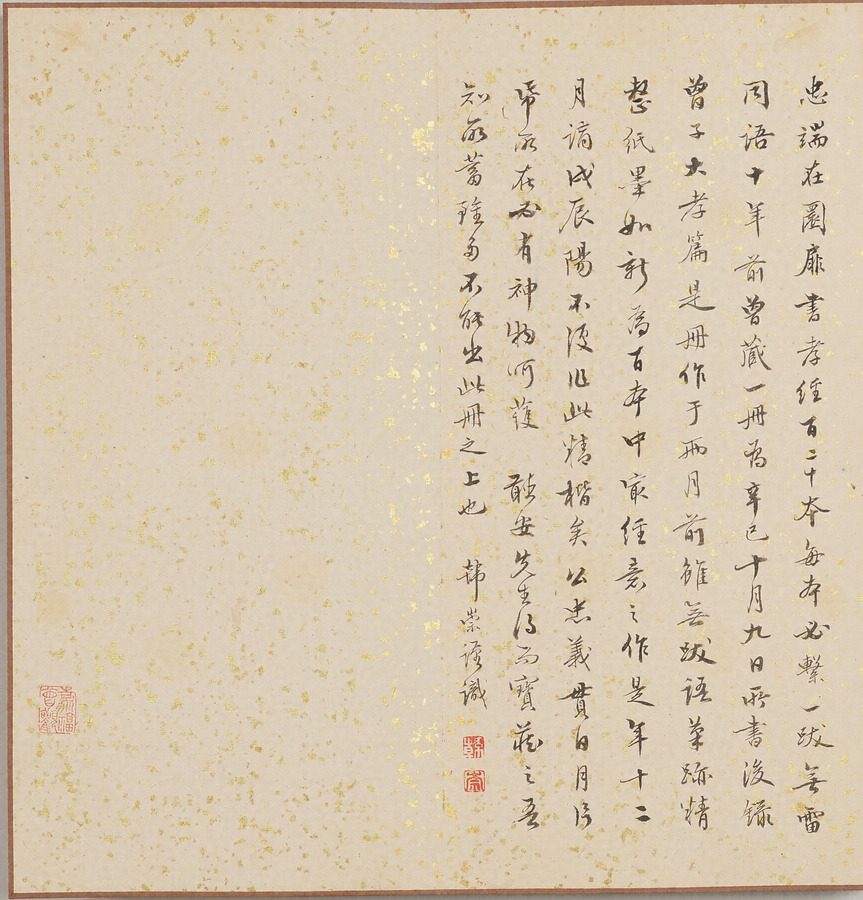 忠端在圜扉書孝經百二十本每本必繫一跋無雷
同語十年前曾藏一冊為辛巳十月九日所書後錄
曾子大孝篇是冊作于兩月前雖無跋語筆跡精
整紙墨如新為百本中最經意之作是年十二
月謫戍辰陽不復作此精楷矣公忠義貫日月片
帋所在必有神物呵護 聽安先生得而寶藏之吾
知所蓄雖多不能出此冊之上也 韓崇謹識
韓
崇